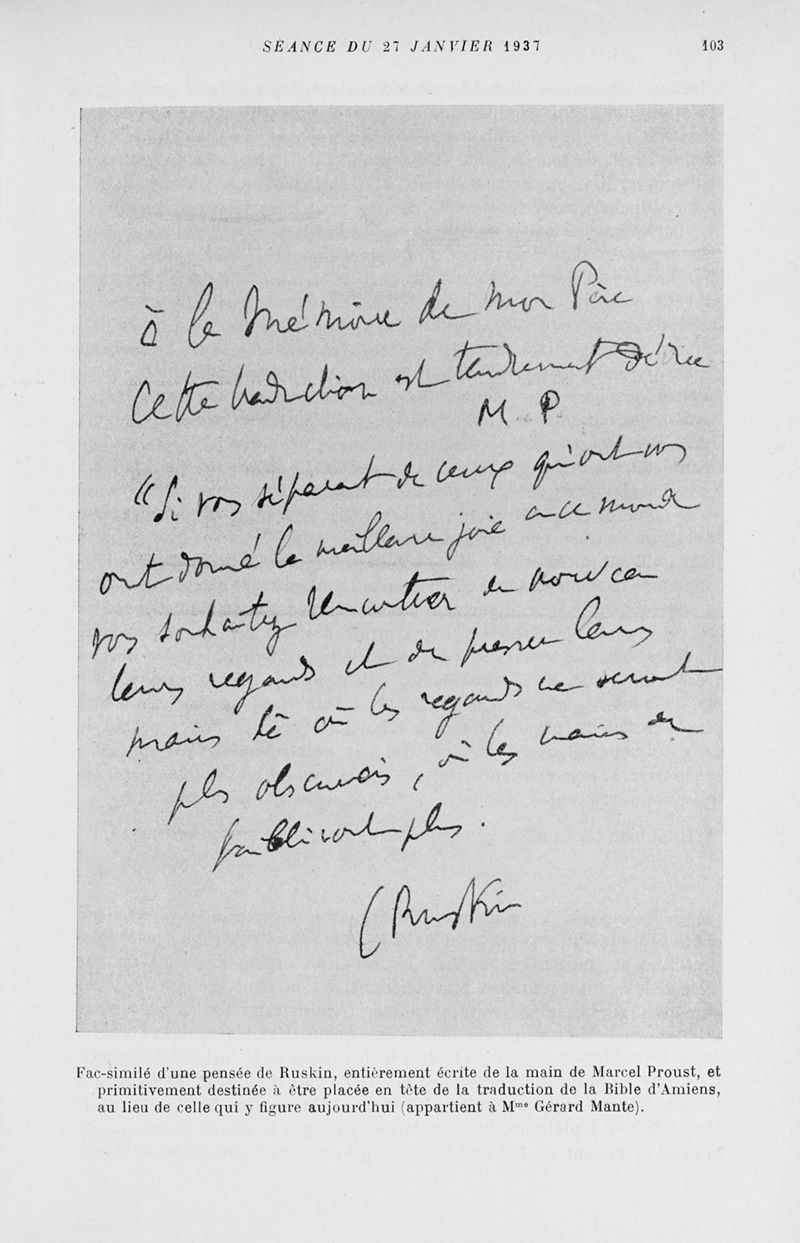 SÉANCE DU 27 JANVIER 1937 103
à la Mémoire de mon Père
Cette traduction est tendrement dédiée
M P
"Si vos séparant de ceux qui
ont donné la meilleure joie en ce monde
vos souhaitez rencontrer de nouveau
leurs regards et de presser leurs
mains là où les regards ne seront
plus obscurcis, où les mains ne
failliront plus.
(Ruskin
Fac-similé d'une pensée de Ruskin, entièrement écrite de la main de Marcel Proust, et
primitivement destinée à être placée en tête de la traduction de la Bible d'Amiens,
au lieu de celle qui y figure aujourd'hui (appartient à Mme Gérard Mante).